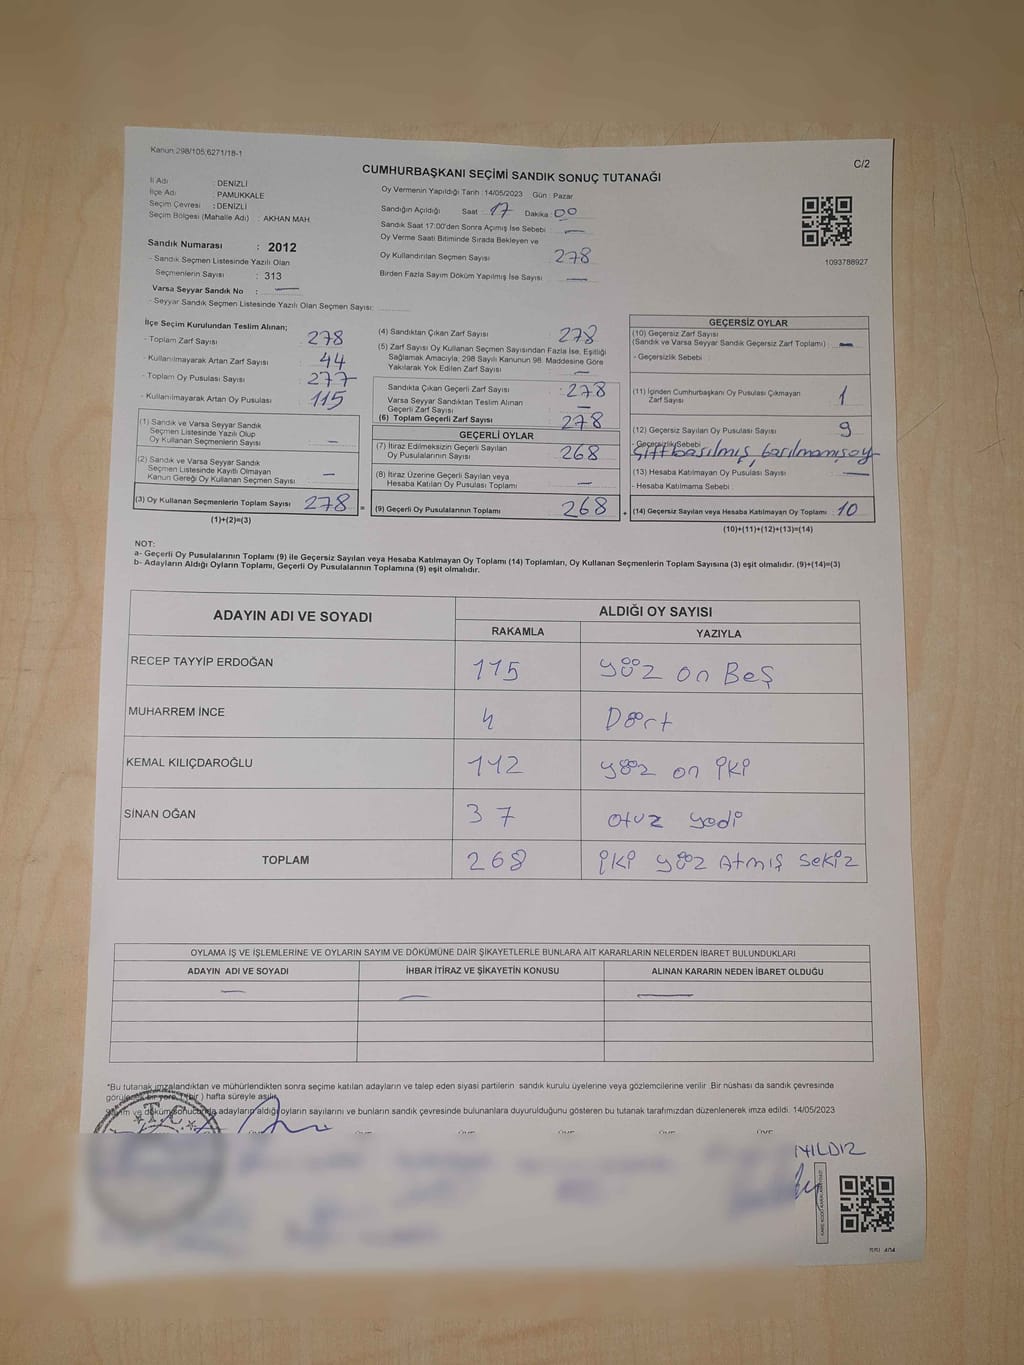 Kanun 298/105,6271/18-1
C/2
CUMHURBAŞKANI SEÇİMİ SANDIK SONUÇ TUTANAĞI
İl Adı : DENİZLİ
İlçe Adı : PAMUKKALE
Seçim Çevresi : DENİZLİ
Seçim Bölgesi (Mahalle Adı) : AKHAN MAH.
Oy Vermenin Yapıldığı Tarih :14/05/2023 Gün : Pazar
Sandığın Açıldığı Saat 17 Dakika 00
Sandık Saat 17:00'den Sonra Açımış İse Sebebi —
Oy Verme Saati Bitiminde Sırada Bekleyen ve
Oy Kullandırılan Seçmen Sayısı 278
Birden Fazla Sayım Döküm Yapılmış İse Sayısı —
1093788927
Sandık Numarası : 2012
- Sandık Seçmen Listesinde Yazılı Olan
Seçmenlerin Sayısı : 313
Varsa Seyyar Sandık No : —
- Seyyar Sandık Seçmen Listesinde Yazılı Olan Seçmen Sayısı:
İlçe Seçim Kurulundan Teslim Alınan;
- Toplam Zarf Sayısı 278
- Kullanılmayarak Artan Zarf Sayısı 44
- Toplam Oy Pusulası Sayısı 277
- Kullanılmayarak Artan Oy Pusulası 115
(1) Sandık ve Varsa Seyyar Sandık
Seçmen Listesinde Yazılı Olup
Oy Kullanan Seçmenlerin Sayısı —
(2) Sandık ve Varsa Seyyar Sandık
Seçmen Listesinde Kayıtlı Olmayan
Kanun Gereği Oy Kullanan Seçmen Sayısı —
(3) Oy Kullanan Seçmenlerin Toplam Sayısı 278
(1)+(2)=(3)
(4) Sandıktan Çıkan Zarf Sayısı 278
(5) Zarf Sayısı Oy Kullanan Seçmen Sayısından Fazla İse, Eşitliği
Sağlamak Amacıyla; 298 Sayılı Kanunun 98. Maddesine Göre
Yakılarak Yok Edilen Zarf Sayısı —
Sandıkta Çıkan Geçerli Zarf Sayısı : 278
Varsa Seyyar Sandıktan Teslim Alınan
Geçerli Zarf Sayısı —
(6) Toplam Geçerli Zarf Sayısı 278
GEÇERLİ OYLAR
(7) İtiraz Edilmeksizin Geçerli Sayılan
Oy Pusulalarının Sayısı 268
(8) İtiraz Üzerine Geçerli Sayılan veya
Hesaba Katılan Oy Pusulası Toplamı —
= (9) Geçerli Oy Pusulalarının Toplamı 268 +
GEÇERSİZ OYLAR
(10) Geçersiz Zarf Sayısı
(Sandık ve Varsa Seyyar Sandık Geçersiz Zarf Toplamı) : —
- Geçersizlik Sebebi :
(11) İçinden Cumhurbaşkanı Oy Pusulası Çıkmayan
Zarf Sayısı 1
(12) Geçersiz Sayılan Oy Pusulası Sayısı 9
- Geçersizlik Sebebi
Çift basılmış, basılmamış oy
(13) Hesaba Katılmayan Oy Pusulası Sayısı —
- Hesaba Katılmama Sebebi :
(14) Geçersiz Sayılan veya Hesaba Katılmayan Oy Toplamı : 10
(10)+(11)+(12)+(13)=(14)
NOT:
a- Geçerli Oy Pusulalarının Toplamı (9) ile Geçersiz Sayılan veya Hesaba Katılmayan Oy Toplamı (14) Toplamları, Oy Kullanan Seçmenlerin Toplam Sayısına (3) eşit olmalıdır. (9)+(14)=(3)
b- Adayların Aldığı Oyların Toplamı, Geçerli Oy Pusulalarının Toplamına (9) eşit olmalıdır.
ADAYIN ADI VE SOYADI
ALDIĞI OY SAYISI
RAKAMLA YAZIYLA
RECEP TAYYİP ERDOĞAN 115 yüz on Beş
MUHARREM İNCE 4 Dört
KEMAL KILIÇDAROĞLU 112 yüz on iki
SİNAN OĞAN 37 otuz yedi
TOPLAM 268 iki yüz Atmış sekiz
OYLAMA İŞ VE İŞLEMLERİNE VE OYLARIN SAYIM VE DÖKÜMÜNE DAİR ŞİKAYETLERLE BUNLARA AİT KARARLARIN NELERDEN İBARET BULUNDUKLARI
ADAYIN ADI VE SOYADI İHBAR İTİRAZ VE ŞİKAYETİN KONUSU ALINAN KARARIN NEDEN İBARET OLDUĞU
— — —
*Bu tutanak imzalandıktan ve mühürlendikten sonra seçime katılan adayların ve talep eden siyasi partilerin sandık kurulu üyelerine veya gözlemcilerine verilir. Bir nüshası da sandık çevresinde
görülecek bir yere 1 (bir) hafta süreyle asılır.
Sayım ve döküm sonucunda adayların aldığı oyların sayılarını ve bunların sandık çevresinde bulunanlara duyurulduğunu gösteren bu tutanak tarafımızdan düzenlenerek imza edildi. 14/05/2023
T.C.
YILDIZ